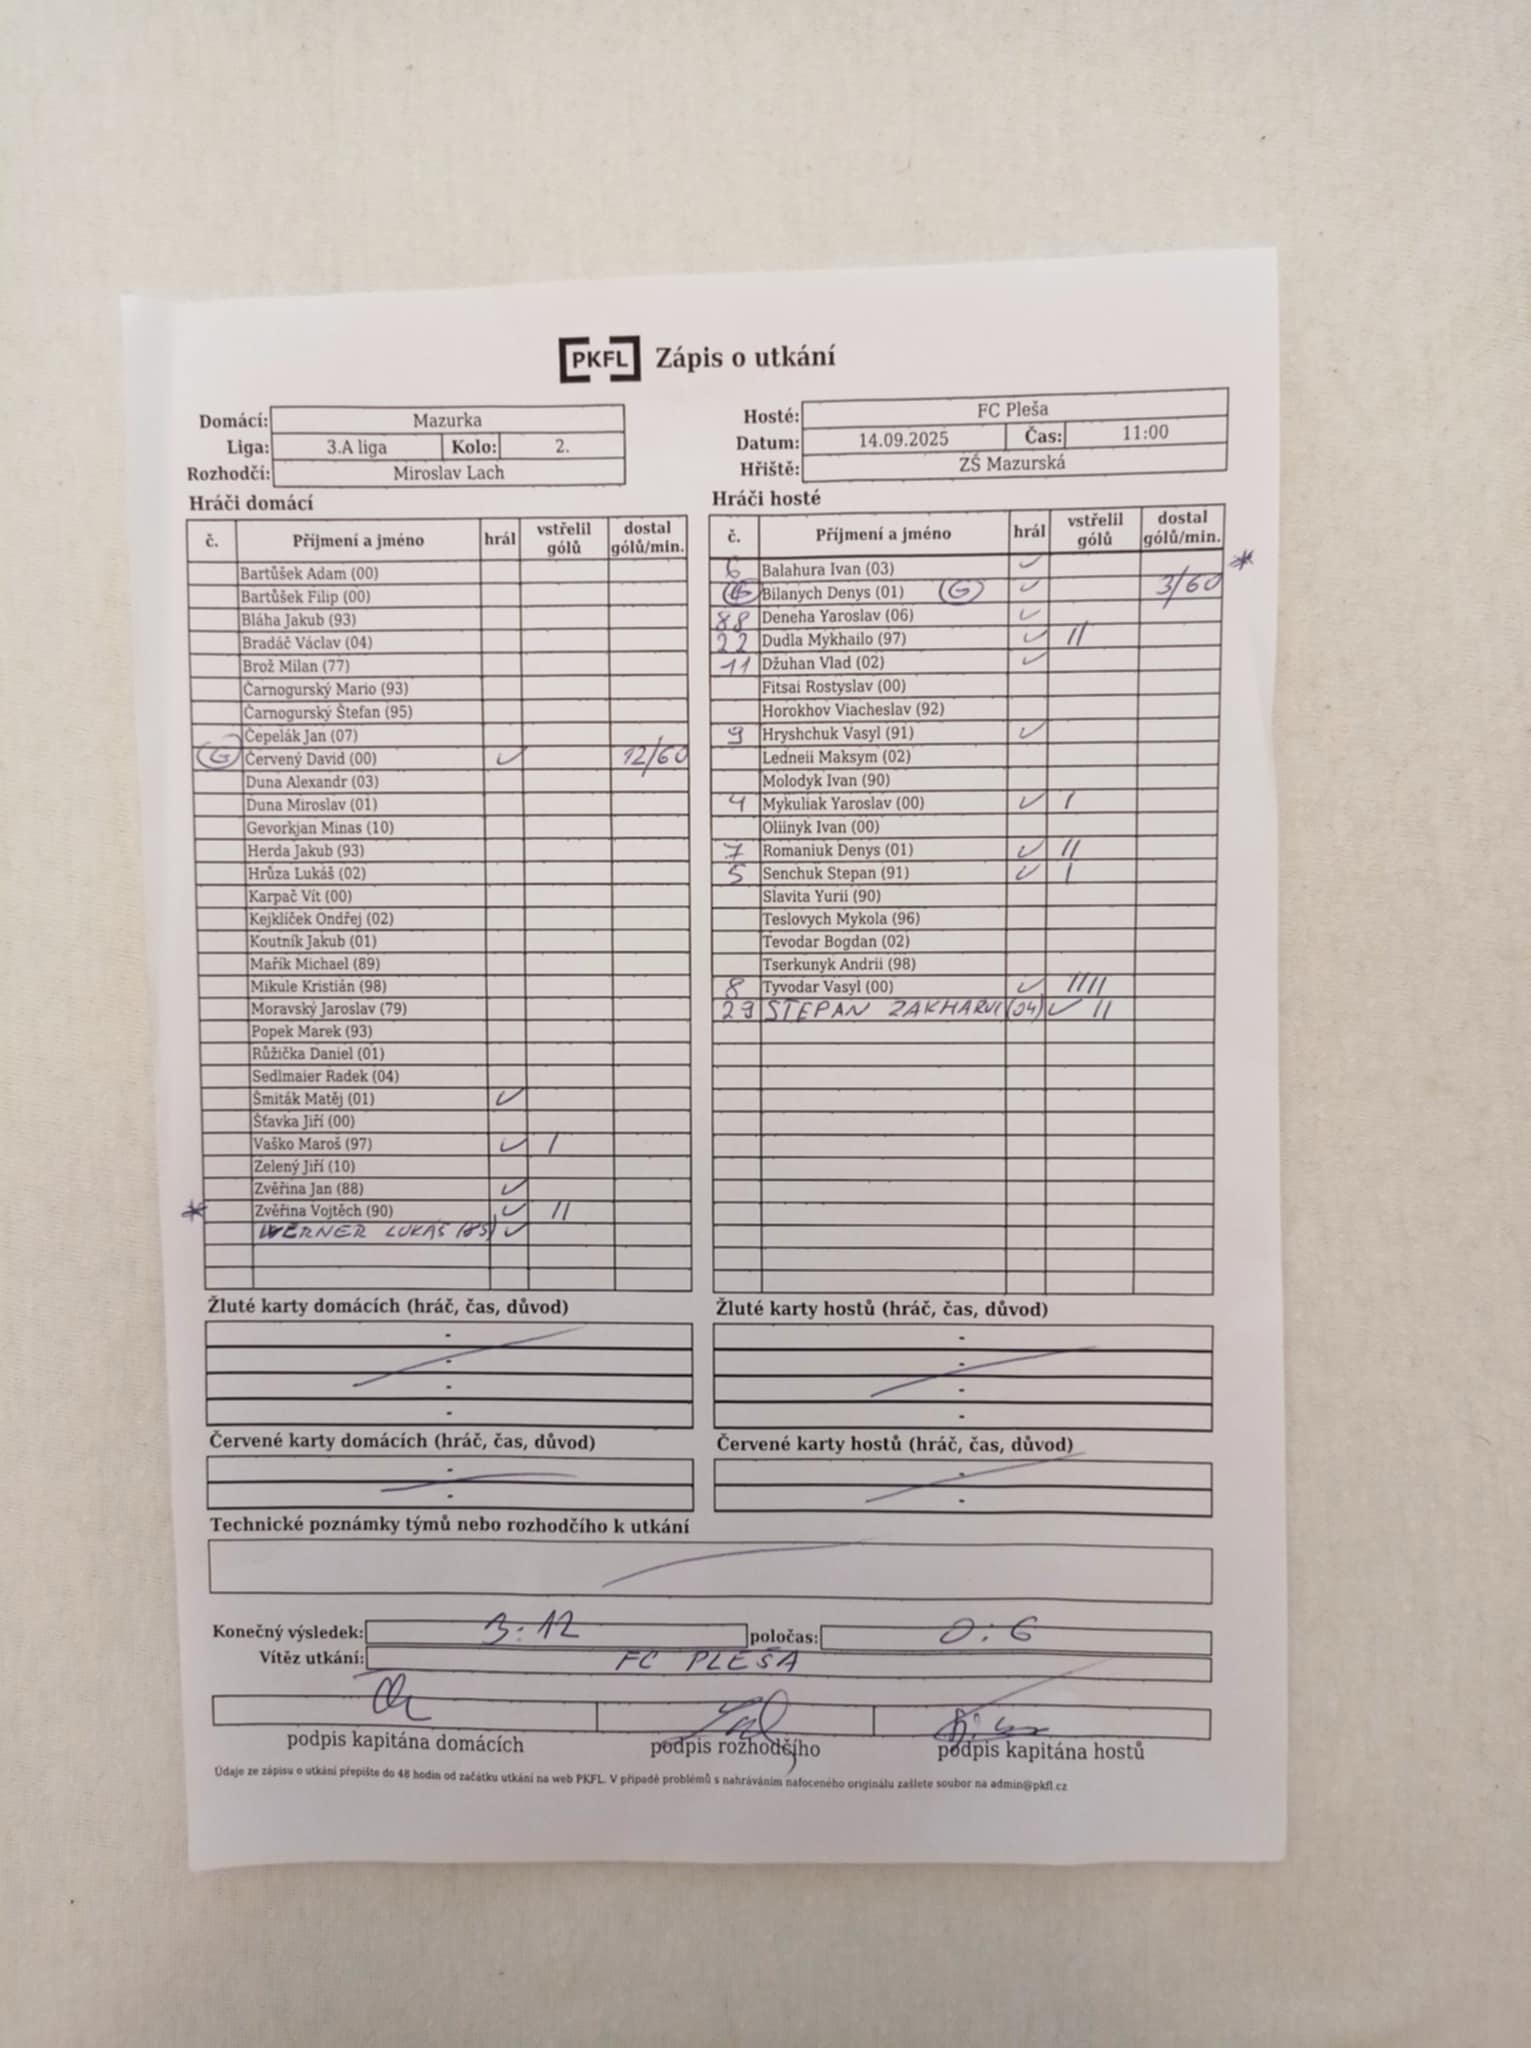 PKFL Zápis o utkání
Domácí: Mazurka
Liga: 3.A liga Kolo: 2.
Rozhodčí: Miroslav Lach
Hosté: FC Pleša
Datum: 14.09.2025 Čas: 11:00
Hřiště: ZŠ Mazurská
Hráči domácí
č. Příjmení a jméno hrál vstřelil gólů dostal gólů/min.
Bartůšek Adam (00)
Bartůšek Filip (00)
Bláha Jakub (93)
Bradáč Václav (04)
Brož Milan (77)
Čarnogurský Mario (93)
Čarnogurský Štefan (95)
Čepelák Jan (07)
G Červený David (00) ✓ 12/60
Duna Alexandr (03)
Duna Miroslav (01)
Gevorkjan Minas (10)
Herda Jakub (93)
Hrůza Lukáš (02)
Karpač Vít (00)
Kejklíček Ondřej (02)
Koutník Jakub (01)
Mařík Michael (89)
Mikule Kristián (98)
Moravský Jaroslav (79)
Popek Marek (93)
Růžička Daniel (01)
Sedlmaier Radek (04)
Šmiták Matěj (01) ✓
Šťavka Jiří (00)
Vaško Maroš (97) ✓ I
Zelený Jiří (10)
Zvěřina Jan (88) ✓
* Zvěřina Vojtěch (90) ✓ II
WERNER LUKÁŠ (85) ✓
Hráči hosté
č. Příjmení a jméno hrál vstřelil gólů dostal gólů/min.
6 Balahura Ivan (03) ✓ *
G Bilanych Denys (01) G ✓ 3/60
88 Deneha Yaroslav (06) ✓
22 Dudla Mykhailo (97) ✓ II
11 Džuhan Vlad (02) ✓
Fitsai Rostyslav (00)
Horokhov Viacheslav (92)
9 Hryshchuk Vasyl (91) ✓
Ledneii Maksym (02)
Molodyk Ivan (90)
4 Mykuliak Yaroslav (00) ✓ I
Oliinyk Ivan (00)
7 Romaniuk Denys (01) ✓ II
5 Senchuk Stepan (91) ✓ I
Slavita Yurii (90)
Teslovych Mykola (96)
Tevodar Bogdan (02)
Tserkunyk Andrii (98)
8 Tyvodar Vasyl (00) ✓ IIII
29 STEPAN (04) ✓ II
Žluté karty domácích (hráč, čas, důvod)
-
-
-
-
Žluté karty hostů (hráč, čas, důvod)
-
-
-
-
Červené karty domácích (hráč, čas, důvod)
-
-
Červené karty hostů (hráč, čas, důvod)
-
-
Technické poznámky týmů nebo rozhodčího k utkání
Konečný výsledek: 3:12 poločas: 0:6
Vítěz utkání: FC PLEŠA
podpis kapitána domácích podpis rozhodčího podpis kapitána hostů
Údaje ze zápisu o utkání přepište do 48 hodin od začátku utkání na web PKFL. V případě problémů s nahráváním nafoceného originálu zašlete soubor na admin@pkfl.cz